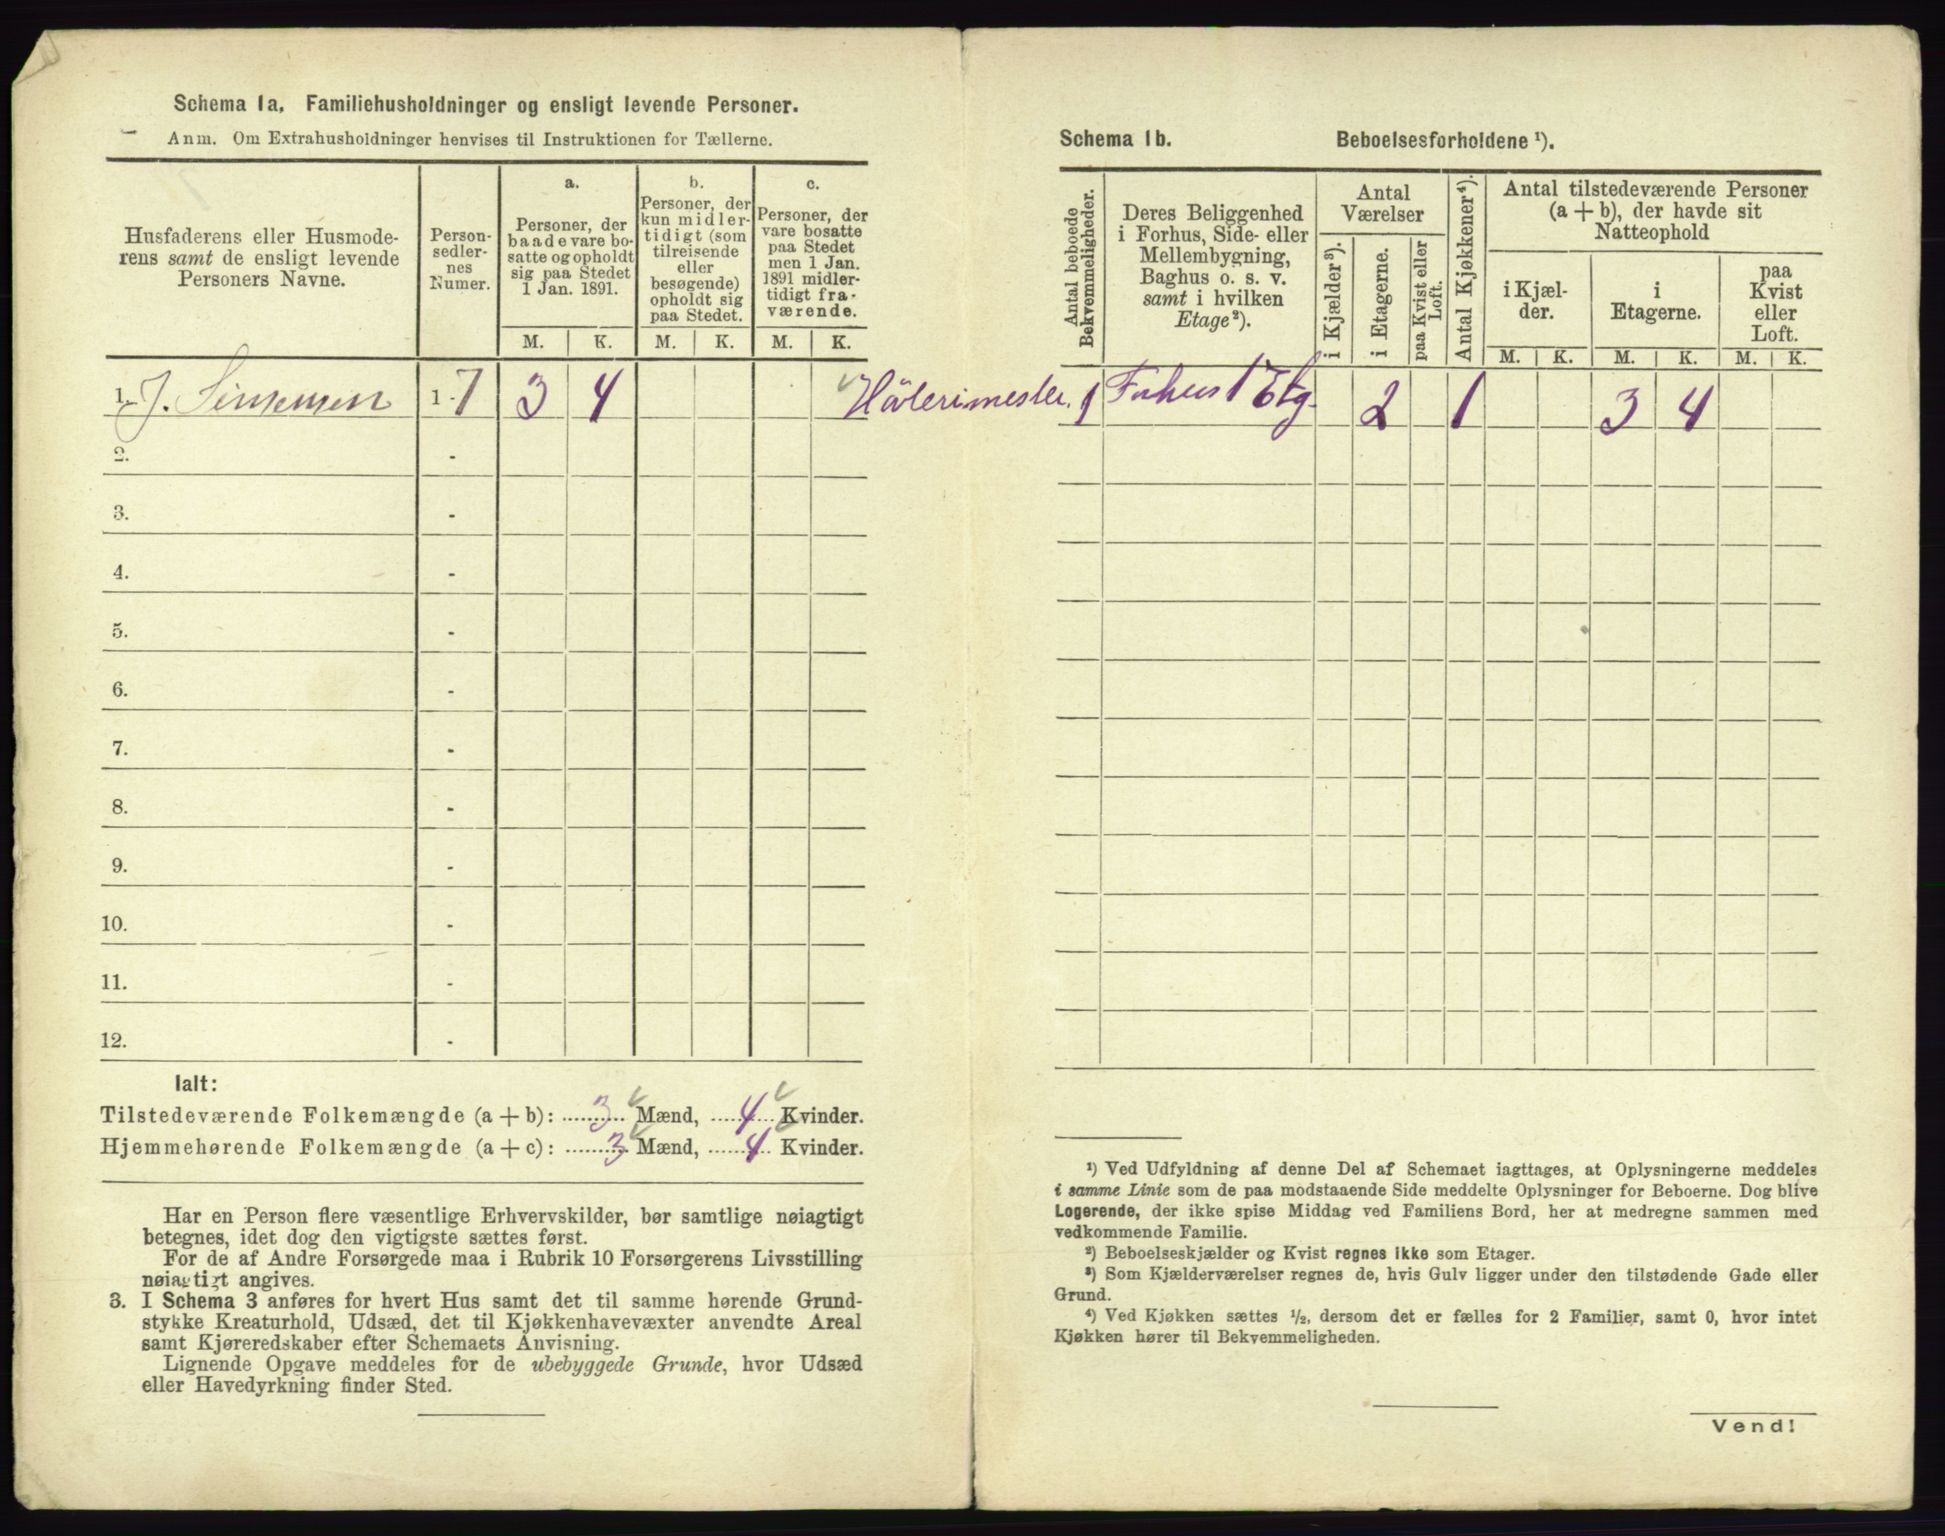 Schema 1a. Familiehusholdninger og ensligt levende Personer.
Anm. Om Extrahusholdninger henvises til Instruktionen for Tællerne.
Husfaderens eller Husmode-
rens samt de ensligt levende
Personers Navne.
Person-
sedler-
nes
Numer.
a.
Personer, der
baade vare bo-
satte og opholdt
sig paa Stedet
1 Jan. 1891.
b.
Personer, der
kun midler-
tidigt (som
tilreisende
eller
besøgende)
opholdt sig
paa Stedet.
c.
Personer, der
vare bosatte
paa Stedet
men 1 Jan.
1891 midler-
tidigt fra-
værende.
M. K. M. K. M. K.
1. J. Simensen 1-7 3 4
2. -
3. -
4. -
5. -
6. -
7. -
8. -
9. -
10. -
11. -
12. -
Ialt:
Tilstedeværende Folkemængde (a + b): 3 Mænd, 4 Kvinder.
Hjemmehørende Folkemængde (a + c): 3 Mænd, 4 Kvinder.
Har en Person flere væsentlige Erhvervskilder, bør samtlige nøiagtigt
betegnes, idet dog den vigtigste sættes først.
For de af Andre Forsørgede maa i Rubrik 10 Forsørgerens Livsstilling
nøiagtigt angives.
3. I Schema 3 anføres for hvert Hus samt det til samme hørende Grund-
stykke Kreaturhold, Udsæd, det til Kjøkkenhavevæxter anvendte Areal
samt Kjøreredskaber efter Schemaets Anvisning.
Lignende Opgave meddeles for de ubebyggede Grunde, hvor Udsæd
eller Havedyrkning finder Sted.
Schema 1b. Beboelsesforholdene ¹).
Antal beboede
Bekvemmeligheder.
Deres Beliggenhed
i Forhus, Side- eller
Mellembygning,
Baghus o. s. v.
samt i hvilken
Etage²).
Antal
Værelser
i Kjælder³).
i Etagerne.
paa Kvist eller
Loft.
Antal Kjøkkener⁴).
Antal tilstedeværende Personer
(a + b), der havde sit
Natteophold
i Kjæl-
der.
i
Etagerne.
paa
Kvist
eller
Loft.
M. K. M. K. M. K.
1 Forhus 1 Etg. 2 1 3 4
¹) Ved Udfyldning af denne Del af Schemaet iagttages, at Oplysningerne meddeles
i samme Linie som de paa modstaaende Side meddelte Oplysninger for Beboerne. Dog blive
Logerende, der ikke spise Middag ved Familiens Bord, her at medregne sammen med
vedkommende Familie.
²) Beboelseskjælder og Kvist regnes ikke som Etager.
³) Som Kjælderværelser regnes de, hvis Gulv ligger under den tilstødende Gade eller
Grund.
⁴) Ved Kjøkken sættes ½, dersom det er fælles for 2 Familier, samt 0, hvor intet
Kjøkken hører til Bekvemmeligheden.
Vend!